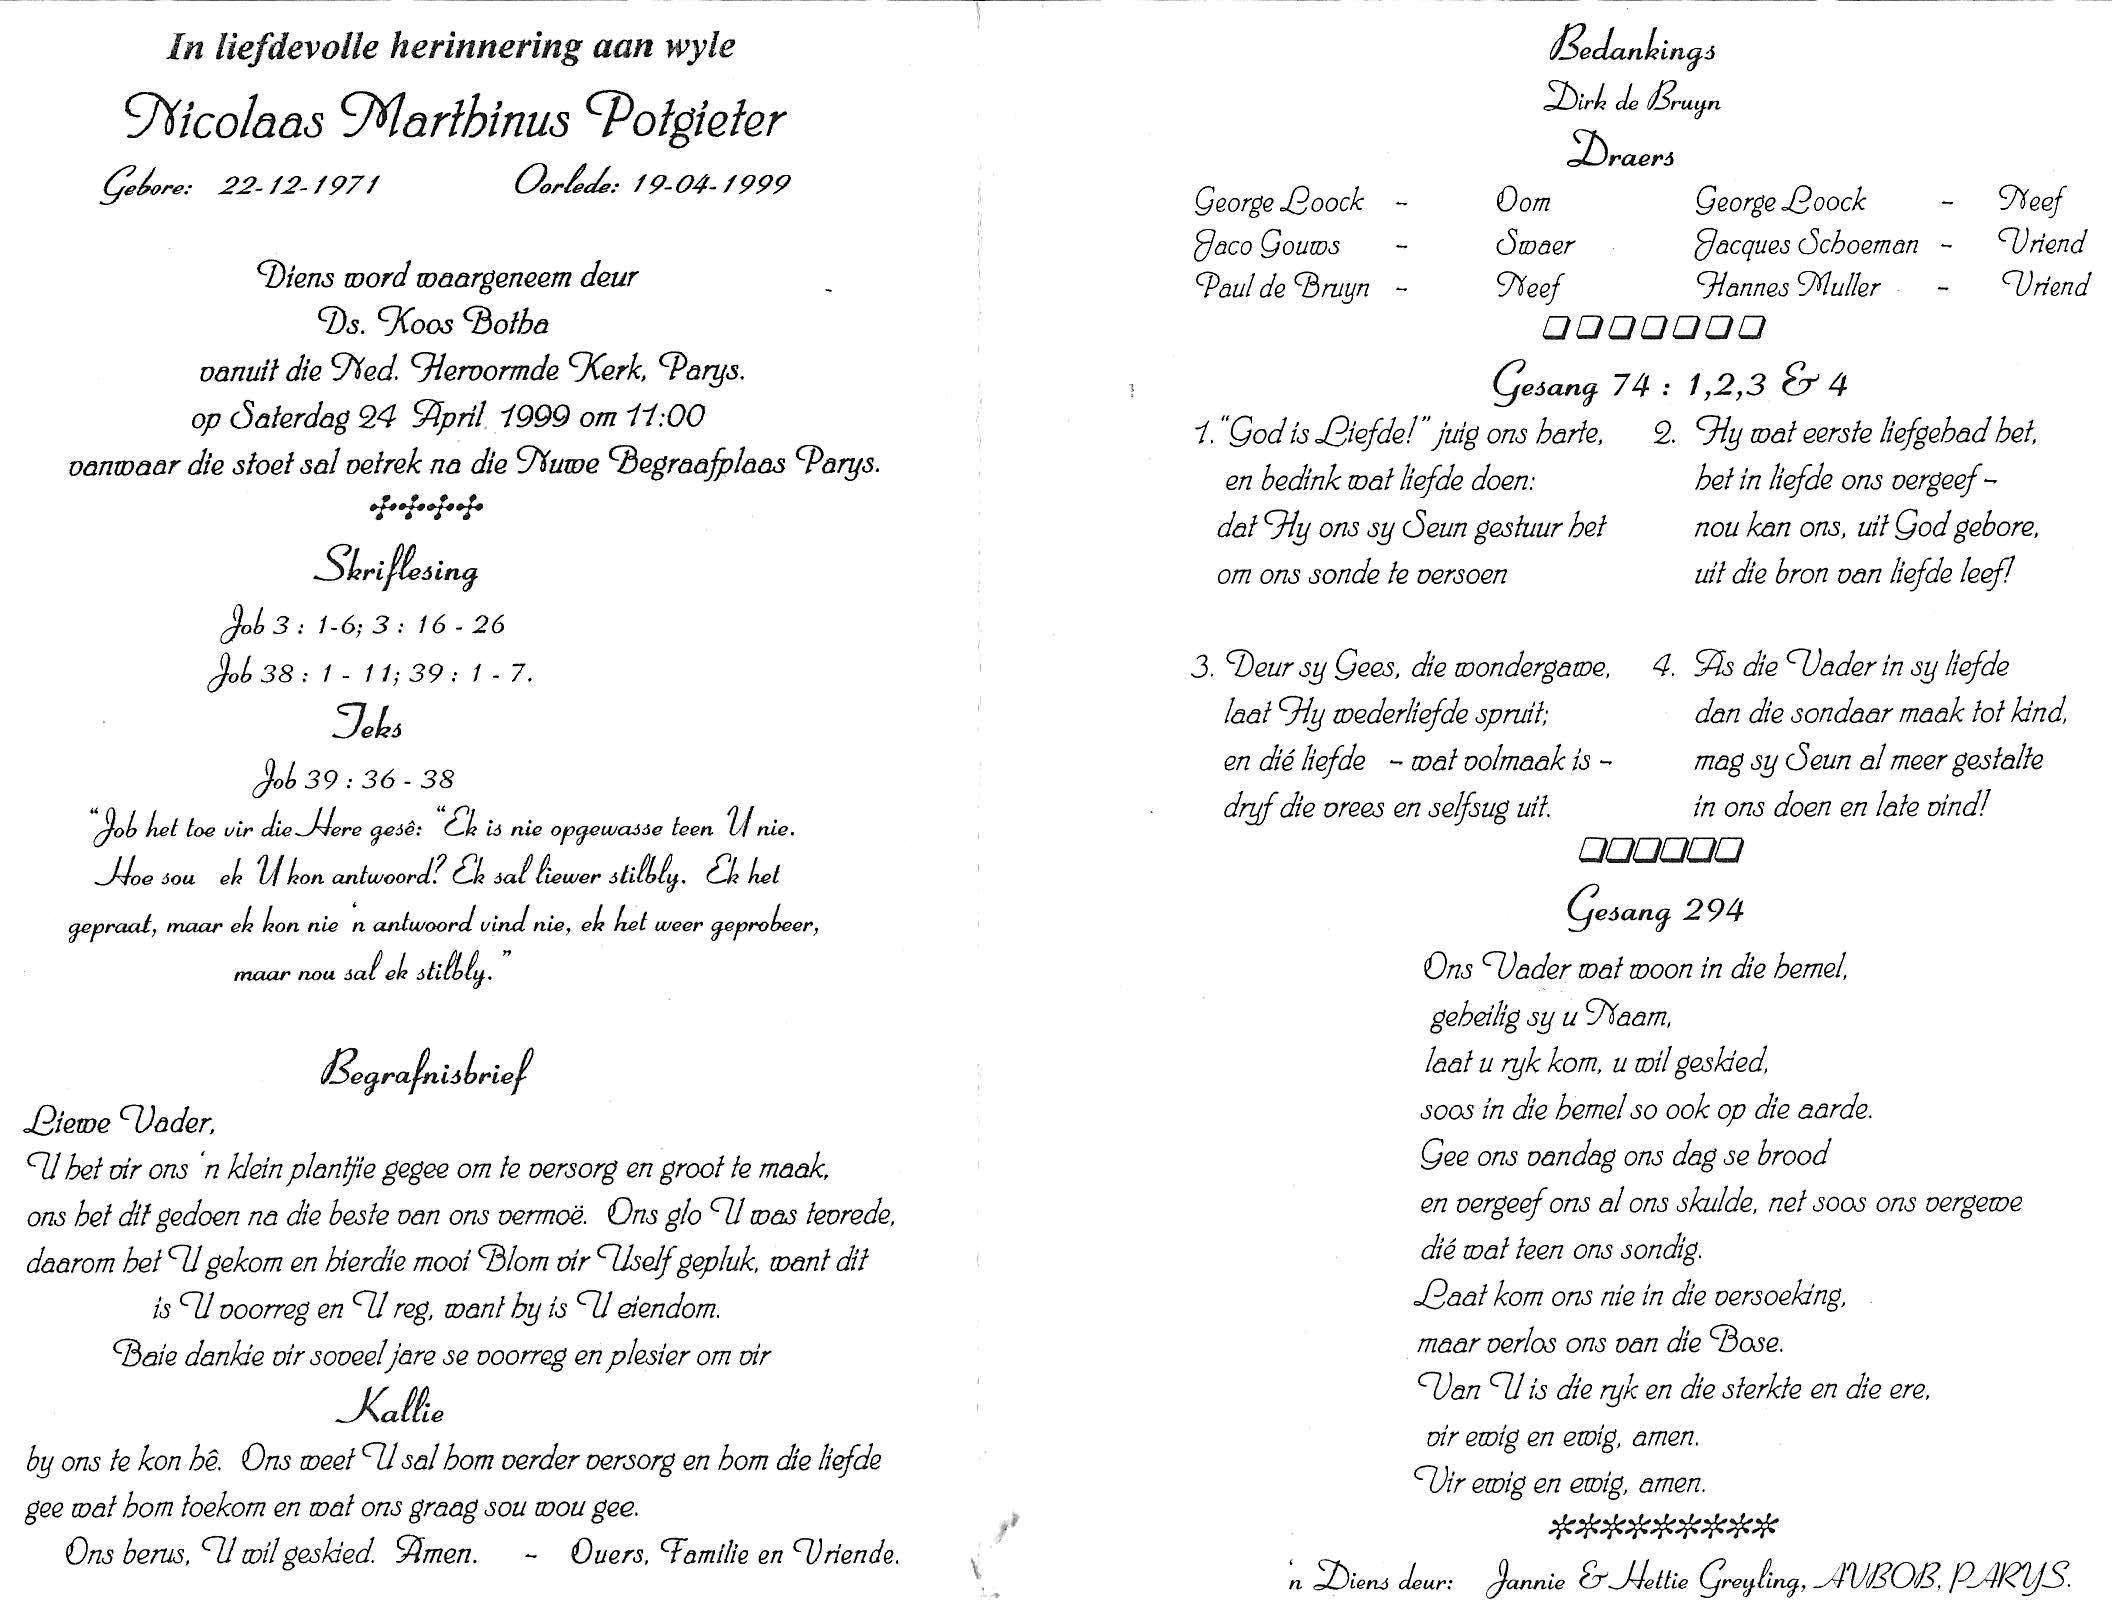 In liefdevolle herinnering aan wyle
Nicolaas Marthinus Potgieter
Gebore: 22-12-1971 Oorlede: 19-04-1999
Diens word waargeneem deur
Ds. Koos Botha
vanuit die Ned. Hervormde Kerk, Parys.
op Saterdag 24 April 1999 om 11:00
vanwaar die stoet sal vetrek na die Nuwe Begraafplaas Parys.
Skriflesing
Job 3 : 1-6; 3 : 16 - 26
Job 38 : 1 - 11; 39 : 1 - 7.
Teks
Job 39 : 36 - 38
"Job het toe vir die Here gesê: "Ek is nie opgewasse teen U nie.
Hoe sou ek U kon antwoord? Ek sal liewer stilbly. Ek het
gepraat, maar ek kon nie 'n antwoord vind nie, ek het weer geprobeer,
maar nou sal ek stilbly."
Begrafnisbrief
Liewe Vader,
U het vir ons 'n klein plantjie gegee om te versorg en groot te maak,
ons het dit gedoen na die beste van ons vermoë. Ons glo U was tevrede,
daarom het U gekom en hierdie mooi Blom vir Uself gepluk, want dit
is U voorreg en U reg, want hy is U eiendom.
Baie dankie vir soveel jare se voorreg en plesier om vir
Kallie
by ons te kon hê. Ons weet U sal hom verder versorg en hom die liefde
gee wat hom toekom en wat ons graag sou wou gee.
Ons berus, U wil geskied. Amen. - Ouers, Familie en Vriende.
Bedankings
Dirk de Bruyn
Draers
George Loock - Oom George Loock - Neef
Jaco Gouws - Swaer Jacques Schoeman - Vriend
Paul de Bruyn - Neef Hannes Muller - Vriend
Gesang 74 : 1,2,3 & 4
1. "God is Liefde!" juig ons harte,
en bedink wat liefde doen:
dat Hy ons sy Seun gestuur het
om ons sonde te versoen
2. Hy wat eerste liefgehad het,
het in liefde ons vergeef -
nou kan ons, uit God gebore,
uit die bron van liefde leef!
3. Deur sy Gees, die wondergawe,
laat Hy wederliefde spruit;
en dié liefde - wat volmaak is -
dryf die vrees en selfsug uit.
4. As die Vader in sy liefde
dan die sondaar maak tot kind,
mag sy Seun al meer gestalte
in ons doen en late vind!
Gesang 294
Ons Vader wat woon in die hemel,
geheilig sy u Naam,
laat u ryk kom, u wil geskied,
soos in die hemel so ook op die aarde.
Gee ons vandag ons dag se brood
en vergeef ons al ons skulde, net soos ons vergewe
dié wat teen ons sondig.
Laat kom ons nie in die versoeking,
maar verlos ons van die Bose.
Van U is die ryk en die sterkte en die ere,
vir ewig en ewig, amen.
Vir ewig en ewig, amen.
*********
'n Diens deur: Jannie & Hettie Greyling, AVBOB, PARYS.